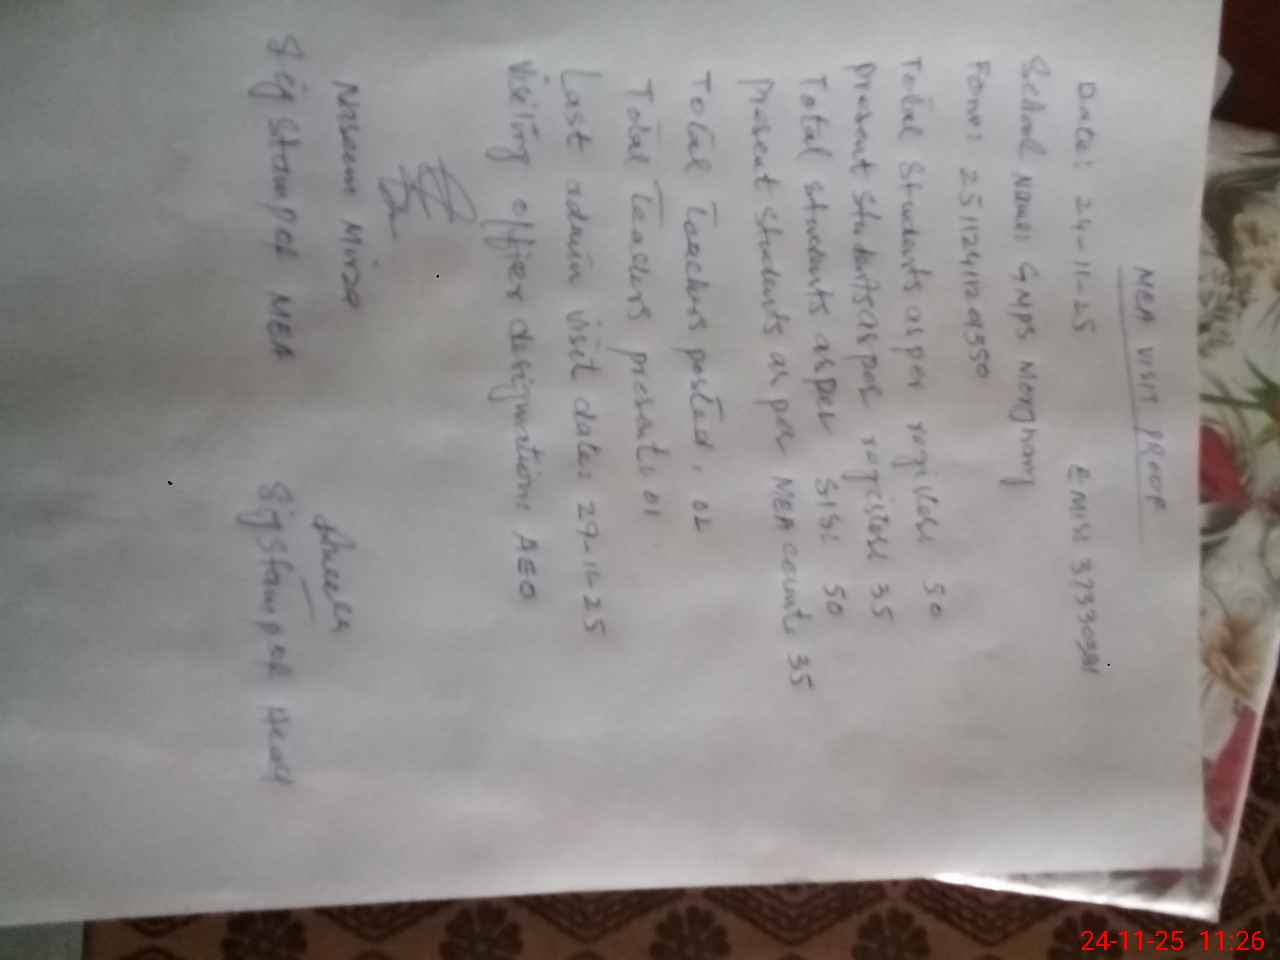 MEA VISIT PROOF
Date: 24-11-25 EMIS: 37330391
School Name: GMPS Morgham
Form: 251124112 9350
Total Students as per register 50
Present students as per register 35
Total students as per SIS: 50
Present students as per MEA count: 35
Total Teachers posted: 02
Total Teachers present: 01
Last admin visit date: 27-11-25
Visiting officer designation: AEO
Naseem Mirza
Sig Stamp of MEA Sig Stamp of Head
24-11-25 11:26